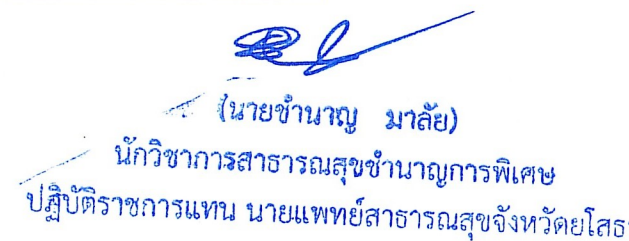 (นายชำนาญ มาลัย)
นักวิชาการสาธารณสุขชำนาญการพิเศษ
ปฏิบัติราชการแทน นายแพทย์สาธารณสุขจังหวัดยโสธ